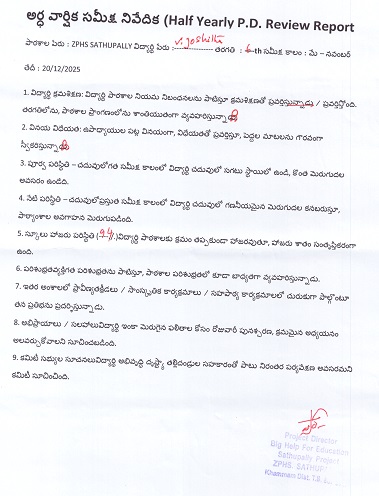 అర్ధ వార్షిక సమీక్ష నివేదిక (Half Yearly P.D. Review Report
పాఠశాల పేరు : ZPHS SATHUPALLY విద్యార్థి పేరు : V. Joshitha తరగతి : 6-th సమీక్ష కాలం : మే – నవంబర్
తేదీ : 20/12/2025
1. విద్యార్థి క్రమశిక్షణ: విద్యార్థి పాఠశాల నియమ నిబంధనలను పాటిస్తూ క్రమశిక్షణతో ప్రవర్తిస్తున్నాడు / ప్రవర్తిస్తోంది.
తరగతిలోను, పాఠశాల ప్రాంగణంలోను శాంతియుతంగా వ్యవహరిస్తున్నా
2. వినయ విధేయత: ఉపాధ్యాయుల పట్ల వినయంగా, విధేయతతో ప్రవర్తిస్తూ, పెద్దల మాటలను గౌరవంగా
స్వీకరిస్తున్నా
3. పూర్వ పరిస్థితి – చదువులోగత సమీక్ష కాలంలో విద్యార్థి చదువులో సగటు స్థాయిలో ఉండి, కొంత మెరుగుదల
అవసరం ఉండేది.
4. నేటి పరిస్థితి – చదువులోప్రస్తుత సమీక్ష కాలంలో విద్యార్థి చదువులో గణనీయమైన మెరుగుదల కనబరుస్తూ,
పాఠ్యాంశాల అవగాహన మెరుగుపడింది.
5. స్కూలు హాజరు పరిస్థితి (94)విద్యార్థి పాఠశాలకు క్రమం తప్పకుండా హాజరవుతూ, హాజరు శాతం సంతృప్తికరంగా
ఉంది.
6. పరిశుభ్రతవ్యక్తిగత పరిశుభ్రతను పాటిస్తూ, పాఠశాల పరిశుభ్రతలో కూడా బాధ్యతగా వ్యవహరిస్తున్నాడు.
7. ఇతర అంశాలలో ప్రావీణ్యతక్రీడలు / సాంస్కృతిక కార్యక్రమాలు / సహపాఠ్య కార్యక్రమాలలో చురుకుగా పాల్గొంటూ
తన ప్రతిభను ప్రదర్శిస్తున్నాడు.
8. అభిప్రాయాలు / సలహాలువిద్యార్థి ఇంకా మెరుగైన ఫలితాల కోసం రోజువారీ పునశ్చరణ, క్రమమైన అధ్యయనం
అలవర్చుకోవాలని సూచించబడింది.
9. కమిటీ సభ్యుల సూచనలువిద్యార్థి అభివృద్ధి దృష్ట్యా తల్లిదండ్రుల సహకారంతో పాటు నిరంతర పర్యవేక్షణ అవసరమని
కమిటీ సూచించింది.
Project Director
Big Help For Education
Sathupally Project
ZPHS. SATHUP
Khammam Dist.